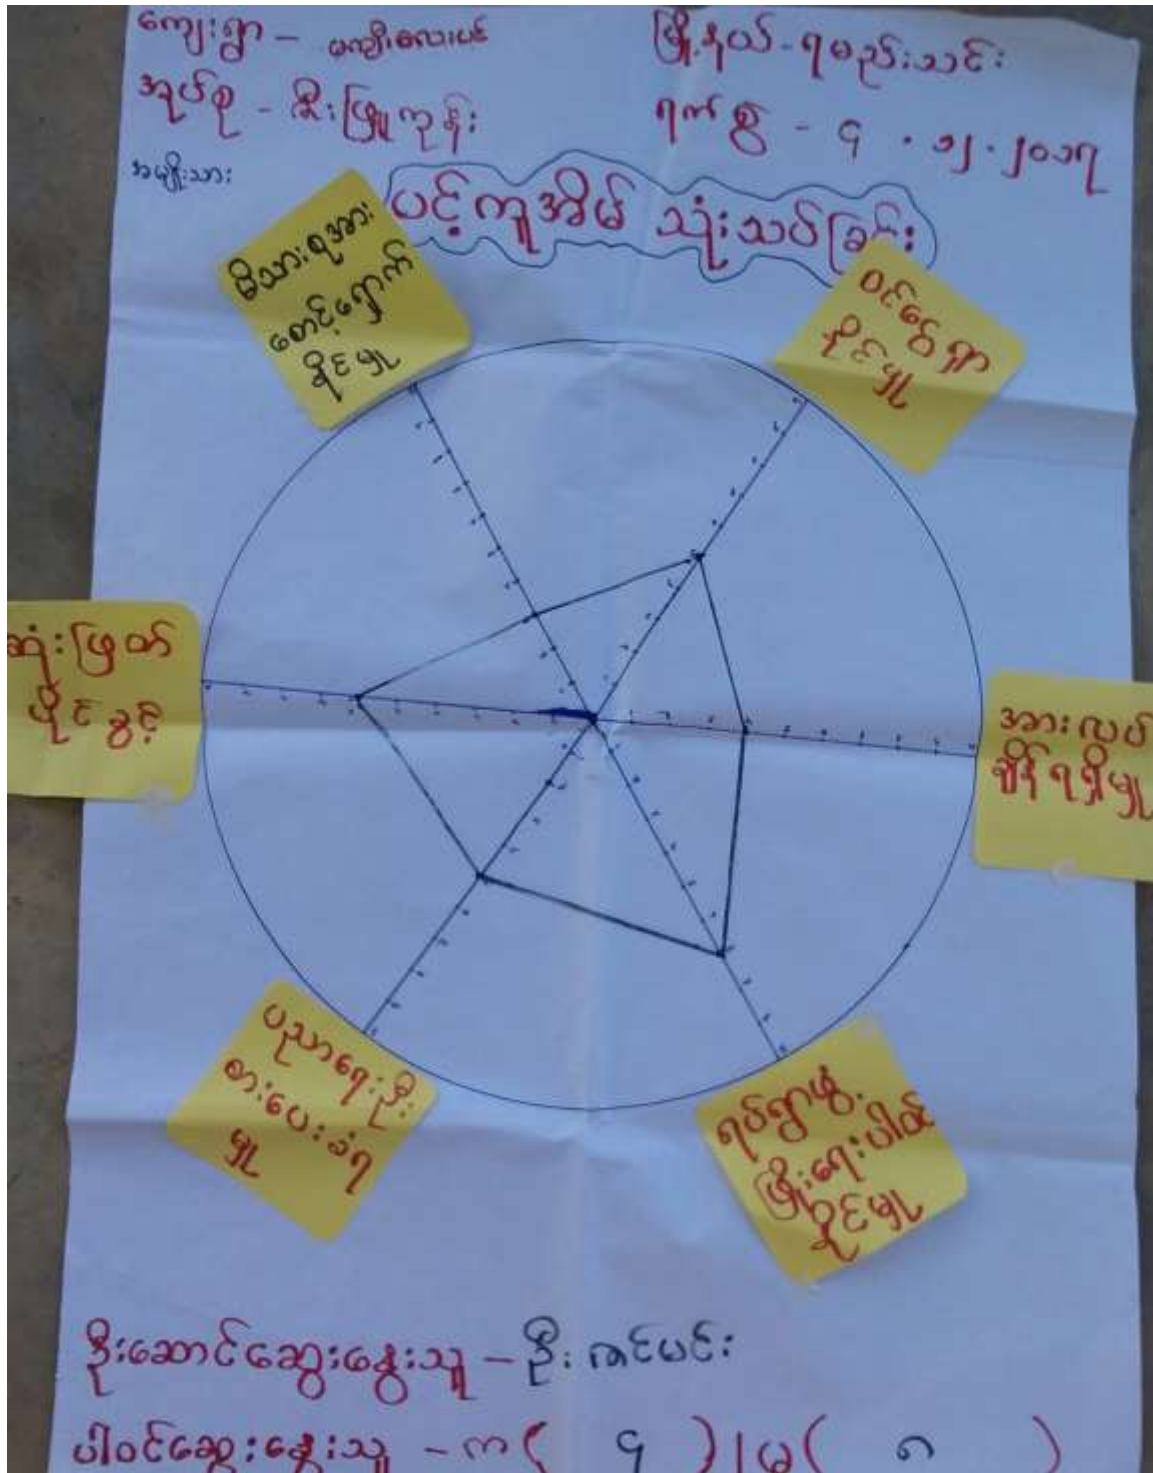 ကျေးရွာ - မကျီးလေးပင်
မြို့နယ် - ရမည်းသင်း
အုပ်စု - ဇီးဖြူကုန်း
ရက်စွဲ - ၄ . ၁၂ . ၂၀၁၇
အမျိုးသား
ပင့်ကူအိမ် သုံးသပ်ခြင်း
မိသားစုအား
စောင့်ရှောက်
နိုင်မှု
ဝင်ငွေရှာ
နိုင်မှု
ဆုံးဖြတ်
ပိုင်ခွင့်
အားလပ်
ချိန်ရရှိမှု
ပညာရေးဦး
စားပေးခံရ
မှု
ရပ်ရွာဖွံ့
ဖြိုးရေးပါဝင်
နိုင်မှု
ဦးဆောင်ဆွေးနွေးသူ - ဦး
ပါဝင်ဆွေးနွေးသူ - က ( ၄ ) / မ ( ၈ )